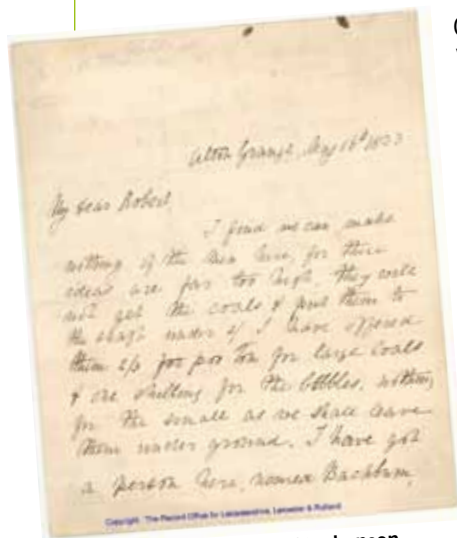 Alton Grange, May 16th 1833
My dear Robert,
I find we can make
nothing of the men here, for there
ideas are far too high. they will
not get the coals & put them to
the shaft under 2/ I have offered
them 1/6 for per ton for large coals
& one shilling for the cobbles, nothing
for the small as we shall leave
them under ground. I have got
a person here, named Bachburn,
Copyright: The Record Office for Leicestershire, Leicester & Rutland